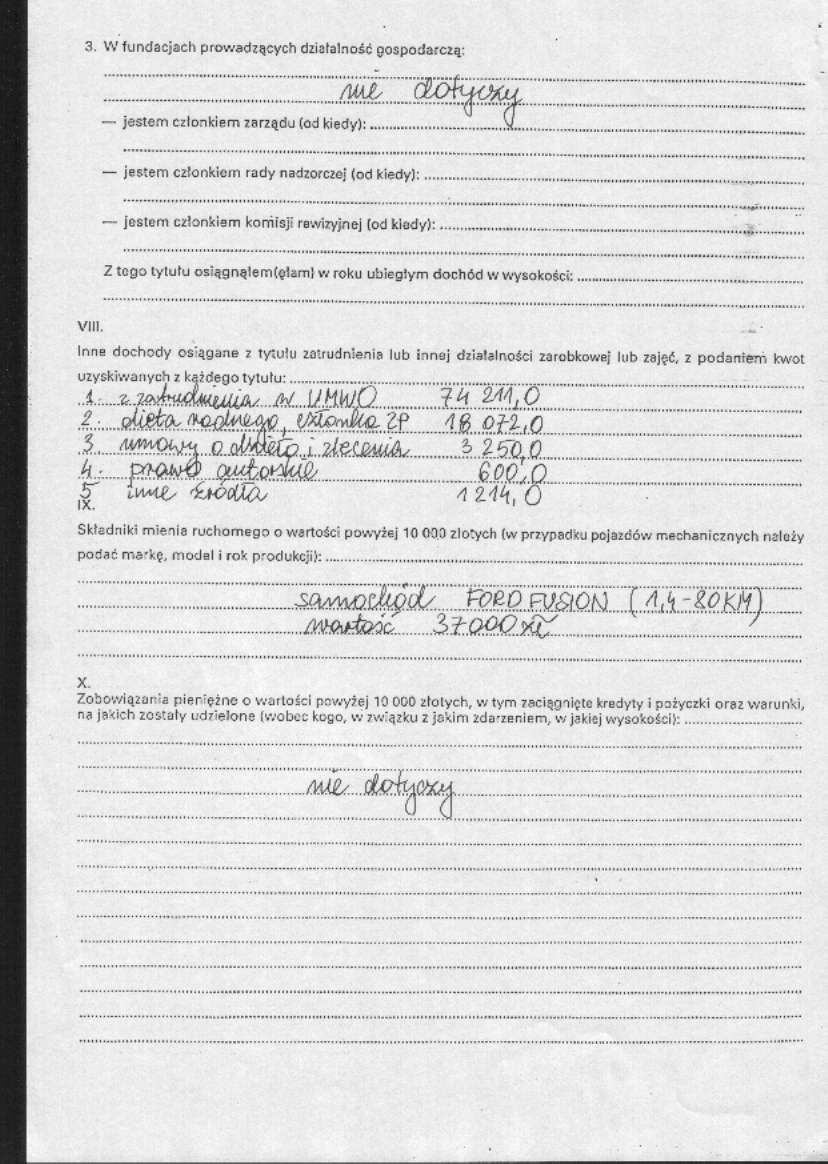 3. W fundacjach prowadzących działalność gospodarczą:
nie dotyczy
— jestem członkiem zarządu (od kiedy):
— jestem członkiem rady nadzorczej (od kiedy):
— jestem członkiem komisji rewizyjnej (od kiedy):
Z tego tytułu osiągnąłem(ęłam) w roku ubiegłym dochód w wysokości:
VIII.
Inne dochody osiągane z tytułu zatrudnienia lub innej działalności zarobkowej lub zajęć, z podaniem kwot
uzyskiwanych z każdego tytułu:
1. z zatrudnienia w UMWO 74 211,0
2. dieta radnego, członka ZP 18 072,0
3. umowy o dzieło i zlecenia 3 250,0
4. prawa autorskie 600,0
5 inne źródła 1 214,0
IX.
Składniki mienia ruchomego o wartości powyżej 10 000 złotych (w przypadku pojazdów mechanicznych należy
podać markę, model i rok produkcji):
samochód FORD FUSION (1,4-80KM)
wartość 37000 zł
X.
Zobowiązania pieniężne o wartości powyżej 10 000 złotych, w tym zaciągnięte kredyty i pożyczki oraz warunki,
na jakich zostały udzielone (wobec kogo, w związku z jakim zdarzeniem, w jakiej wysokości):
nie dotyczy